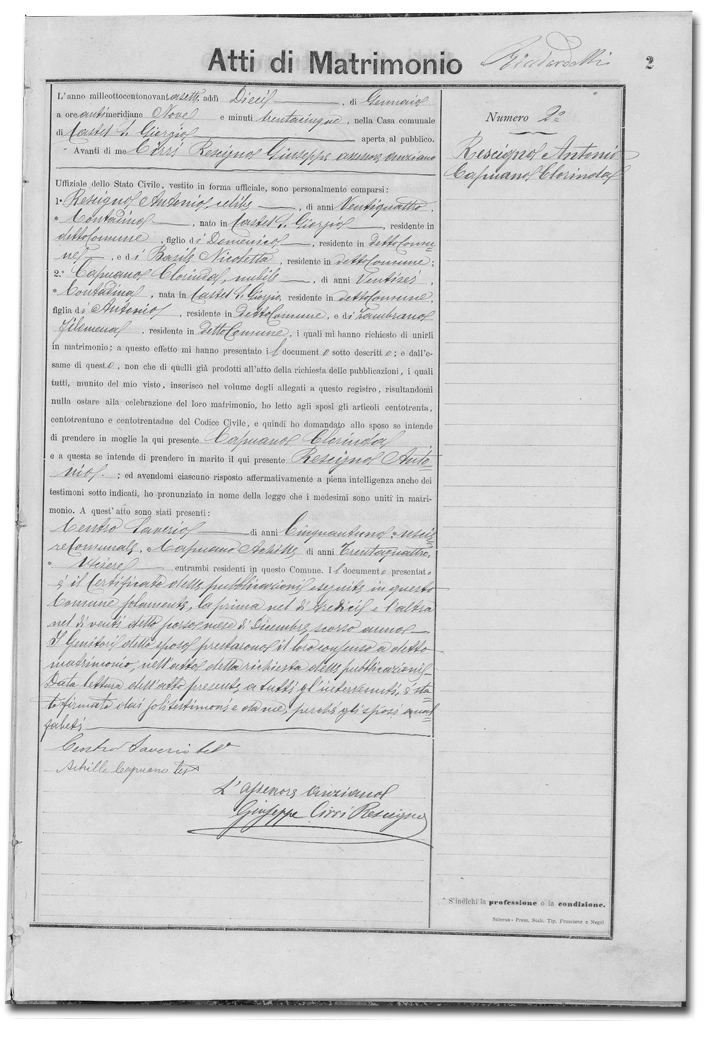 Atti di Matrimonio
2
Numero 2°
Rescigno Antonio
Capuano Clorinda
L'anno milleottocentonovantasette, addì Dieci, di Gennaio
a ore antimeridiane Nove e minuti trentacinque, nella Casa comunale
di Castel S. Giorgio aperta al pubblico.
Avanti di me Cirri Rescigno Giuseppe assessore anziano
Uffiziale dello Stato Civile, vestito in forma ufficiale, sono personalmente comparsi:
1° Rescigno Antonio, celibe, di anni Ventiquattro,
* Contadino, nato in Castel S. Giorgio, residente in
detto Comune, figlio di Domenico, residente in detto Comu-
ne, e di Basile Nicoletta, residente in detto Comune;
2.° Capuano Clorinda, nubile, di anni Ventisei,
* Contadina, nata in Castel S. Giorgio, residente in detto Comune,
figlia di Antonio, residente in detto Comune, e di Zambrano
Filomena, residente in detto Comune, i quali mi hanno richiesto di unirli
in matrimonio; a questo effetto mi hanno presentato il documento sotto descritto; e dall'e-
same di questo, non che di quelli già prodotti all'atto della richiesta delle pubblicazioni, i quali
tutti, munito del mio visto, inserisco nel volume degli allegati a questo registro, risultandomi
nulla ostare alla celebrazione del loro matrimonio, ho letto agli sposi gli articoli centotrenta,
centotrentuno e centotrentadue del Codice Civile, e quindi ho domandato allo sposo se intende
di prendere in moglie la qui presente Capuano Clorinda
e a questa se intende di prendere in marito il qui presente Rescigno Anto-
nio; ed avendomi ciascuno risposto affermativamente a piena intelligenza anche dei
testimoni sotto indicati, ho pronunziato in nome della legge che i medesimi sono uniti in matri-
monio. A quest'atto sono stati presenti:
Centro Saverio di anni Cinquantuno, uscie-
re Comunale, e Capuano Achille di anni trentaquattro,
* Usciere entrambi residenti in questo Comune. Il documento presentato
è il Certificato delle pubblicazioni eseguite in questo
Comune solamente, la prima nel dì tredici e l'altra
nel dì venti dello scorso mese di Dicembre scorso anno
I Genitori dello sposo prestarono il loro consenso a detto
matrimonio, nell'atto della richiesta delle pubblicazioni.
Data lettura dell'atto presente a tutti gl'intervenuti, è sta-
to firmato dai soli testimoni e da me, perchè gli sposi anal-
fabeti.
Centro Saverio test°
Achille Capuano tes°
L'assessore anziano
Giuseppe Cirri Rescigno
* S'indichi la professione o la condizione.